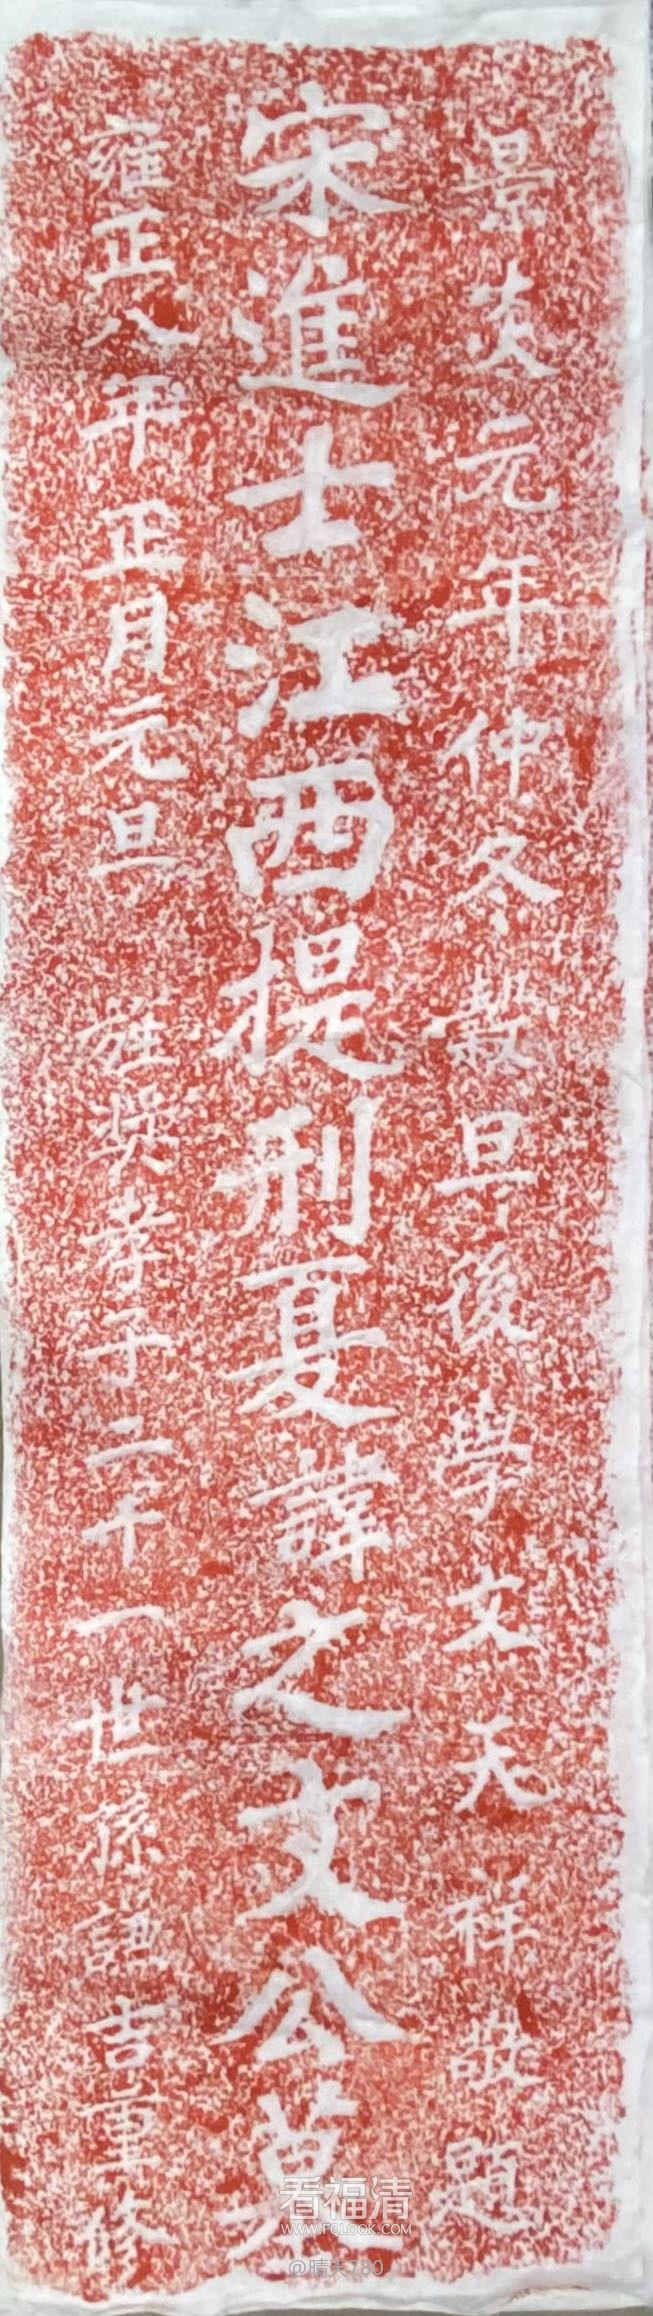 景炎元年仲冬穀旦後學文天祥敬題
宋進士江西提刑夏諱之文公墓
雍正八年正月元旦 旌奬孝子二十一世孫謙吉重修
看福清
WWW.FQLOOK.COM
@晴天780